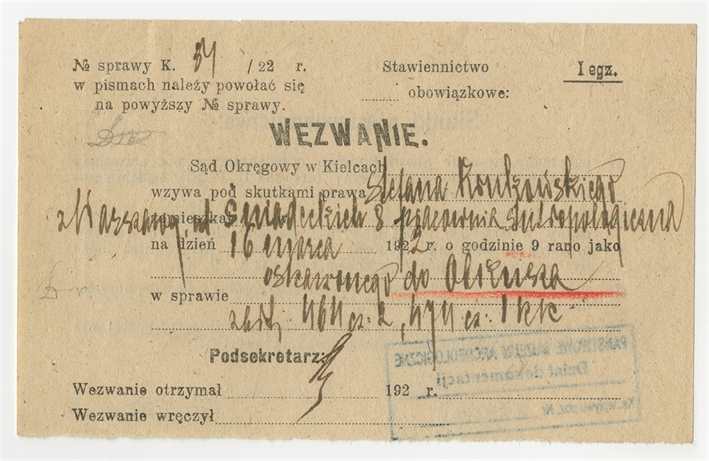 № sprawy K. 54 / 22 r. Stawiennictwo I egz.
w pismach należy powołać się obowiązkowe:
na powyższy № sprawy.
WEZWANIE.
Sąd Okręgowy w Kielcach
wzywa pod skutkami prawa Stefana Krukowskiego
zamieszkał
z Warszawy, ul Śniadeckich 8 pracownia Antropologiczna
na dzień 16 marca 1922 r. o godzinie 9 rano jako
oskarżonego do Olkusza
w sprawie
464 cz. 2, 474 cz. 1 kk
Podsekretarz:
Wezwanie otrzymał 192 r.
Wezwanie wręczył
PAŃSTWOWE MUZEUM ARCHEOLOGICZNE
Dział dokumentacji